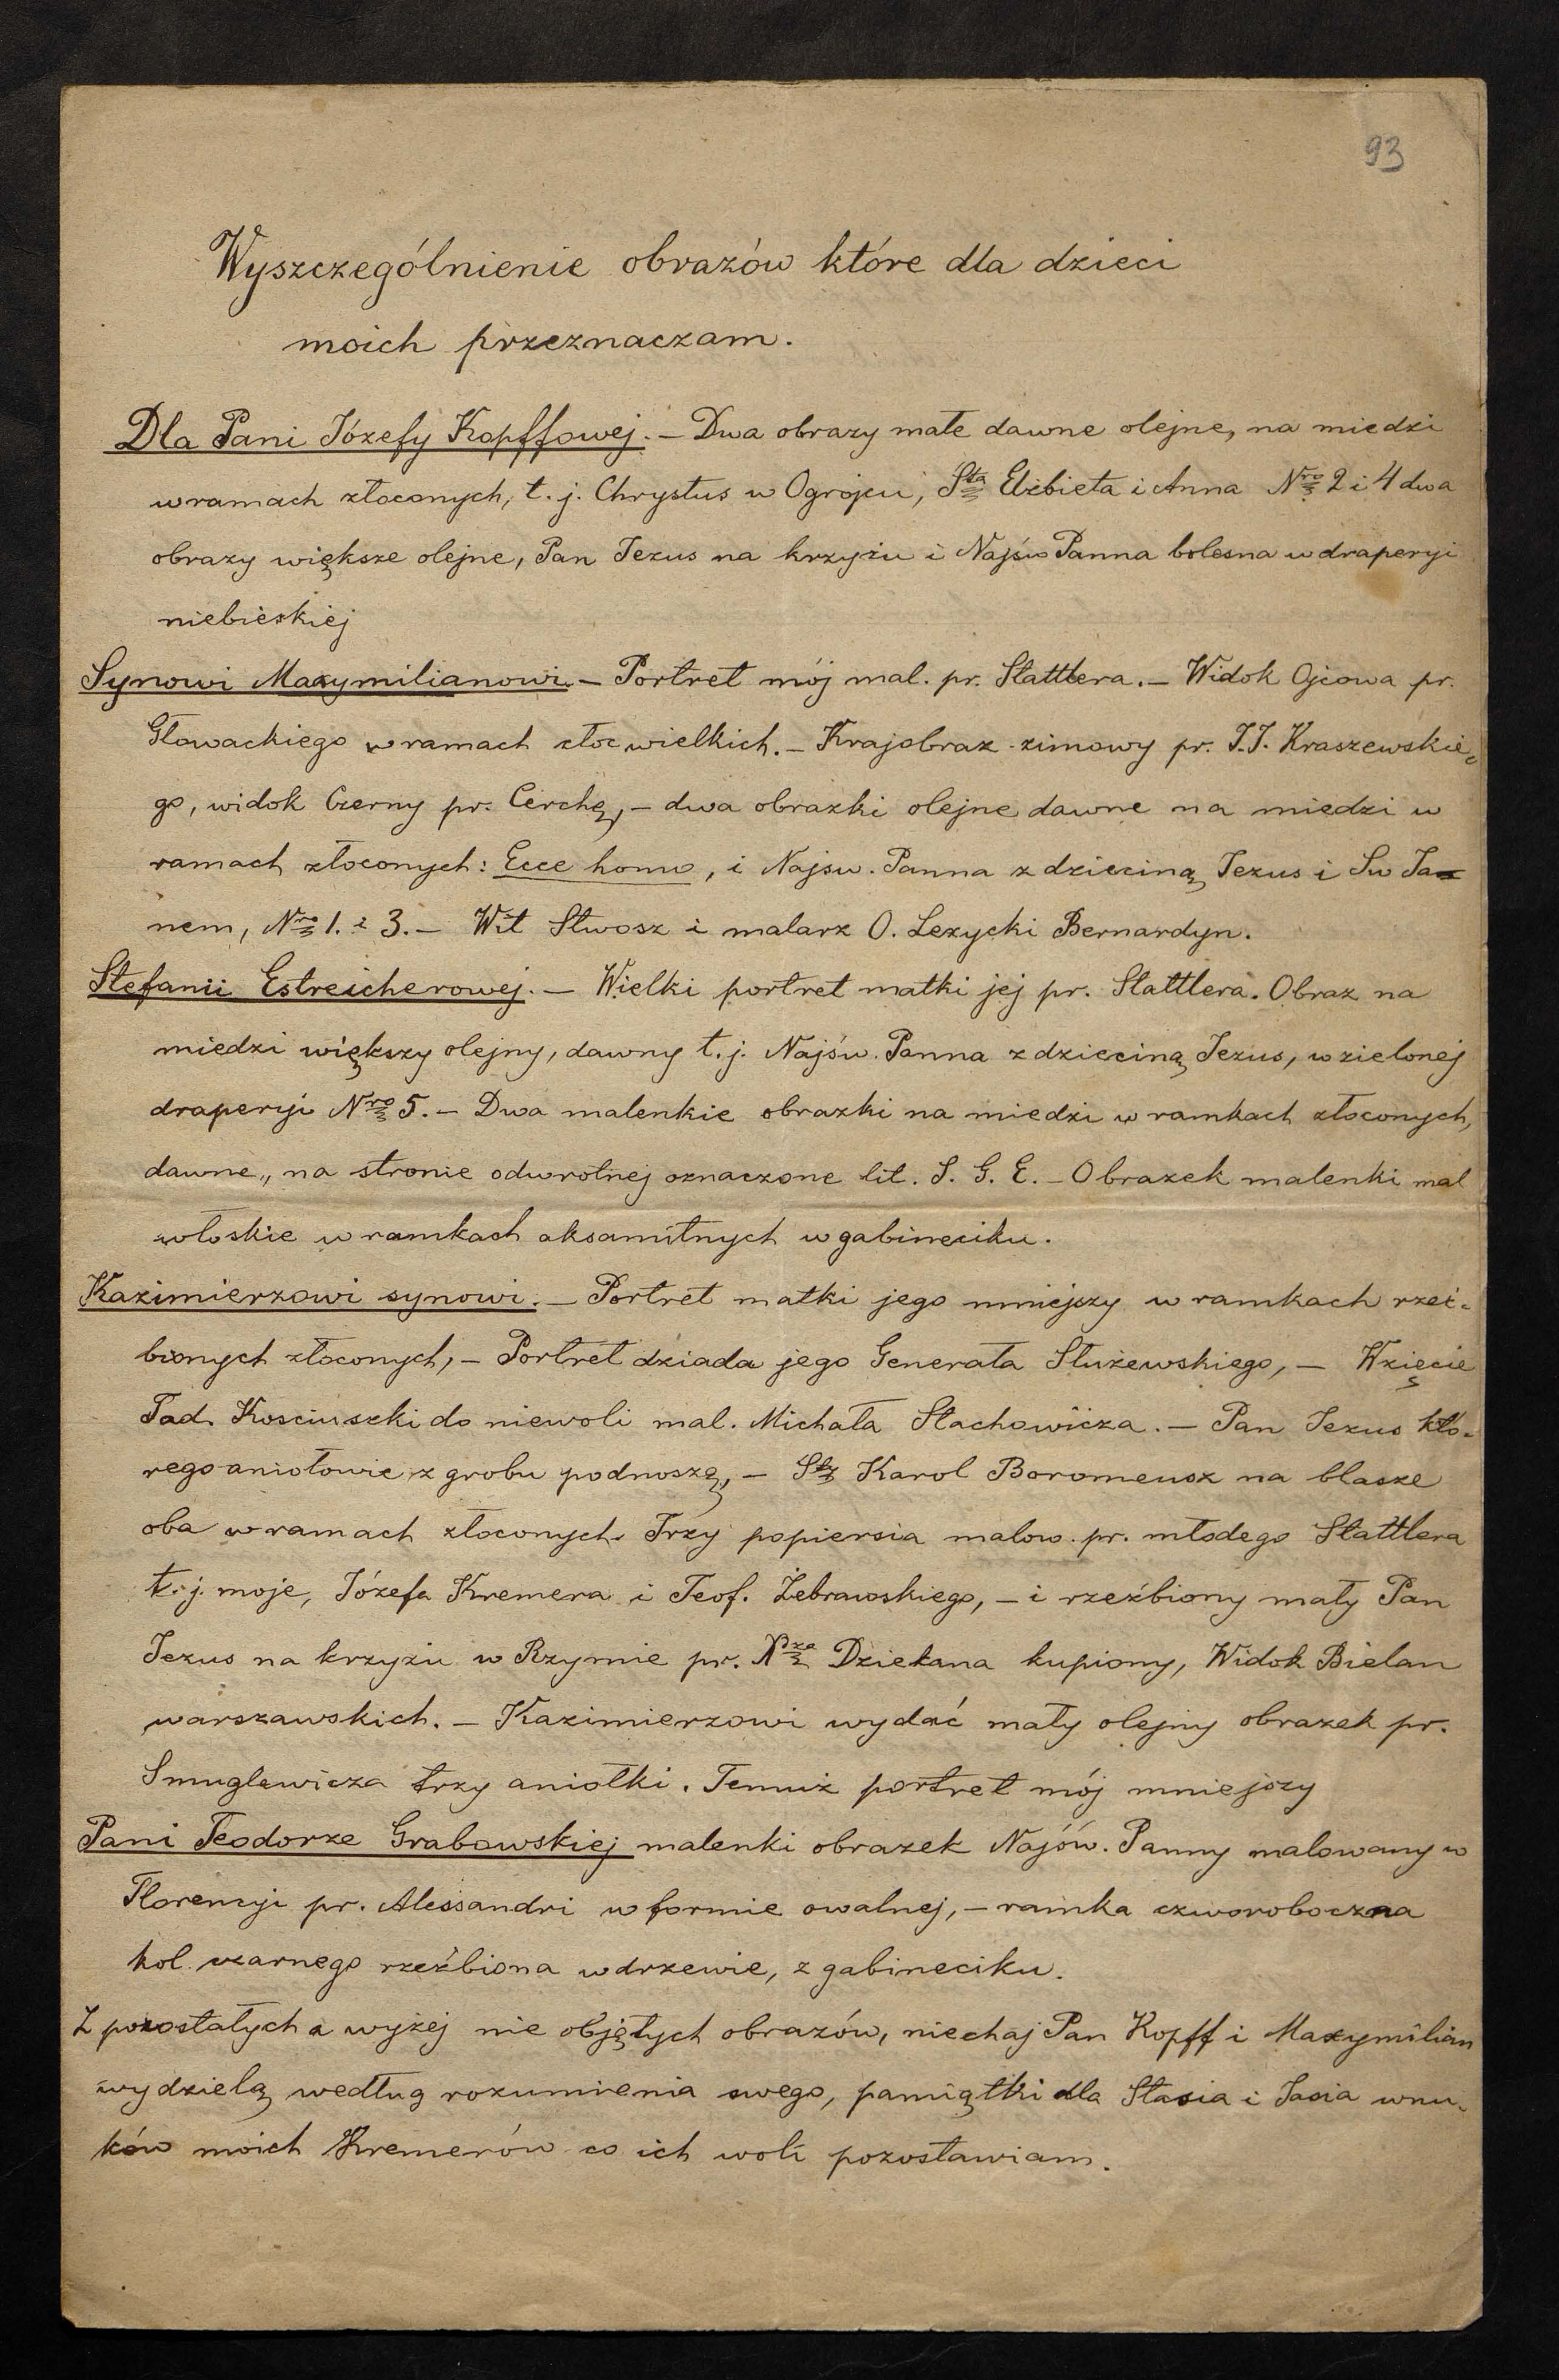 93
Wyszczególnienie obrazów które dla dzieci
moich przeznaczam.
Dla Pani Józefy Kopffowej. – Dwa obrazy małe dawne olejne, na miedzi
w ramach złoconych, t. j. Chrystus w Ogrojcu, Sta Elżbieta i Anna Nro 2 i 4 dwa
obrazy większe olejne, Pan Jezus na krzyżu i Najśw Panna bolesna w draperyi
niebieskiej
Synowi Maxymilianowi. – Portret mój mal. pr. Stattlera. – Widok Ojcowa pr.
Głowackiego w ramach złoc wielkich. – Krajobraz zimowy pr. J.I. Kraszewskie-
go, widok Czerny pr. Cerchę, – dwa obrazki olejne dawne na miedzi w
ramach złoconych: Ecce homo, i Najsw. Panna z dzieciną Jezus i Sw Ja-
nem, Nro 1. i 3. – Wit Stwosz i malarz O. Lexycki Bernardyn.
Stefanii Estreicherowej. – Wielki portret matki jej pr. Stattlera. Obraz na
miedzi większy olejny, dawny t. j. Najśw. Panna z dzieciną Jezus, w zielonej
draperyi Nro 5. – Dwa malenkie obrazki na miedzi w ramkach złoconych,
dawne,, na stronie odwrotnej oznaczone lit. S. G. E. – Obrazek malenki mal
włoskie w ramkach aksamitnych w gabineciku.
Kazimierzowi synowi. – Portret matki jego mniejszy w ramkach rzeź-
bionych złoconych, – Portret dziada jego Generała Służewskiego, – Wzięcie
Tad. Kosciuszki do niewoli mal. Michała Stachowicza. – Pan Jezus któ-
rego aniołowie z grobu podnoszą, – Sty Karol Boromeusz na blasze
oba w ramach złoconych. Trzy popiersia malow. pr. młodego Stattlera
t. j. moje, Józefa Kremera i Teof. Żebrawskiego, – i rzeźbiony mały Pan
Jezus na krzyżu w Rzymie pr. Xza Dziekana kupiony, Widok Bielan
warszawskich. – Kazimierzowi wydać mały olejny obrazek pr.
Smuglewicza trzy aniołki. Temuż portret mój mniejszy
Pani Teodorze Grabowskiej malenki obrazek Najśw. Panny malowany w
Florencyi pr. Alessandri w formie owalnej, – ramka czworoboczna
kol. czarnego rzeźbiona w drzewie, z gabineciku.
Z pozostałych a wyżej nie objętych obrazów, niechaj Pan Kopff i Maxymilian
wydzielą według rozumienia swego, pamiątki dla Stasia i Jasia wnu-
ków moich Kremerów co ich woli pozostawiam.